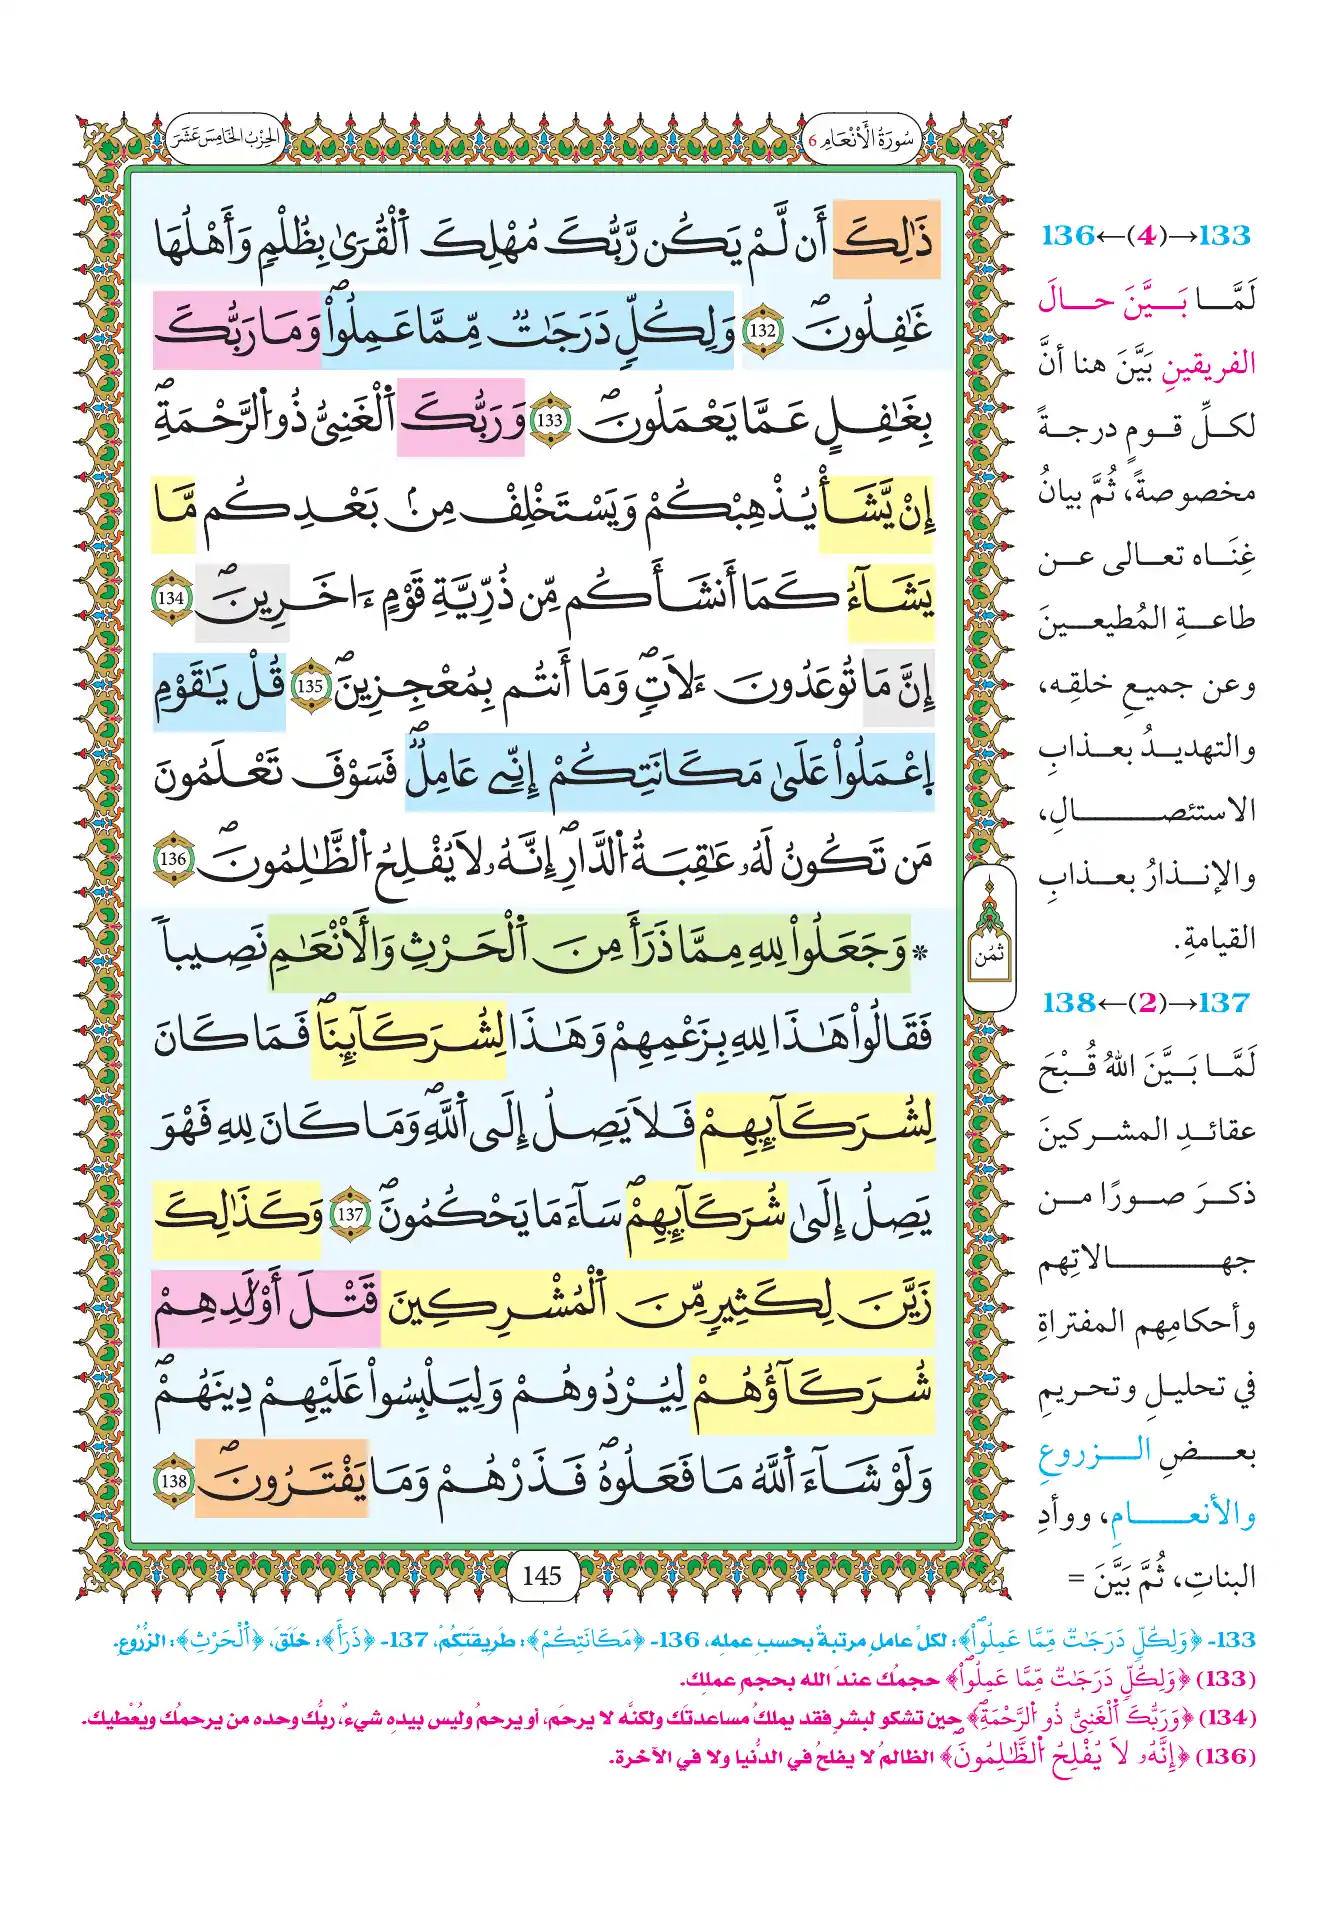 سُورَةُ الْأَنْعَامِ 6
الحِزْبُ الخَامِسَ عَشَرَ
ذَٰلِكَ أَن لَّمْ يَكُن رَّبُّكَ مُهْلِكَ اَ۬لْقُر۪ىٰ بِظُلْمٖ وَأَهْلُهَا
غَٰفِلُونَۖ 132 وَلِكُلّٖ دَرَجَٰتٞ مِّمَّا عَمِلُواْۖ وَمَا رَبُّكَ
بِغَٰفِلٍ عَمَّا يَعْمَلُونَۖ 133 وَرَبُّكَ اَ۬لْغَنِيُّ ذُو اُ۬لرَّحْمَةِۖ
إِنْ يَّشَأْ يُذْهِبْكُمْ وَيَسْتَخْلِفْ مِنۢ بَعْدِكُم مَّا
يَشَآءُ كَمَا أَنشَأَكُم مِّن ذُرِّيَّةِ قَوْمٍ ءَاخَرِينَۖ 134
إِنَّ مَا تُوعَدُونَ ءَلَاتٖۖ وَمَا أَنتُم بِمُعْجِزِينَۖ 135 قُلْ يَٰقَوْمِ
اِ۪عْمَلُواْ عَلَىٰ مَكَانَتِكُمْ إِنِّي عَامِلٞۖ فَسَوْفَ تَعْلَمُونَ
مَن تَكُونُ لَهُۥ عَٰقِبَةُ اُ۬لدّ۪ارِۖ إِنَّهُۥ لَا يُفْلِحُ اُ۬لظَّٰلِمُونَۖ 136
* وَجَعَلُواْ لِلهِ مِمَّا ذَرَأَ مِنَ اَ۬لْحَرْثِ وَالْأَنْعَٰمِ نَصِيباٗ
فَقَالُواْ هَٰذَا لِلهِ بِزَعْمِهِمْ وَهَٰذَا لِشُرَكَآئِنَاۖ فَمَا كَانَ
لِشُرَكَآئِهِمْ فَلَا يَصِلُ إِلَى اَ۬للَّهِۖ وَمَا كَانَ لِلهِ فَهْوَ
يَصِلُ إِلَىٰ شُرَكَآئِهِمْۖ سَآءَ مَا يَحْكُمُونَۖ 137 وَكَذَٰلِكَ
زَيَّنَ لِكَثِيرٖ مِّنَ اَ۬لْمُشْرِكِينَ قَتْلَ أَوْلَٰدِهِمْ
شُرَكَآؤُهُمْ لِيُرْدُوهُمْ وَلِيَلْبِسُواْ عَلَيْهِمْ دِينَهُمْۖ
وَلَوْ شَآءَ اَ۬للَّهُ مَا فَعَلُوهُۖ فَذَرْهُمْ وَمَا يَفْتَرُونَۖ 138
ثُمُن
145
133→(4)←136
لَمَّا بَيَّنَ حالَ
الفريقينِ بَيَّنَ هنا أنَّ
لكلِّ قومٍ درجةً
مخصوصةً، ثُمَّ بيانُ
غِنَاه تعالى عن
طاعةِ المُطيعينَ
وعن جميعِ خلقِه،
والتهديدُ بعذابِ
الاستئصالِ،
والإنذارُ بعذابِ
القيامةِ.
137→(2)←138
لَمَّا بَيَّنَ اللهُ قُبْحَ
عقائدِ المشركينَ
ذكرَ صورًا من
جهالاتِهم
وأحكامِهم المفتراةِ
في تحليلِ وتحريمِ
بعضِ الزروعِ
والأنعامِ، ووأدِ
البناتِ، ثُمَّ بَيَّنَ =
133- ﴿وَلِكُلّٖ دَرَجَٰتٞ مِّمَّا عَمِلُواْۖ﴾: لكلِّ عاملٍ مرتبةٌ بحسبِ عملِهِ، 136- ﴿مَكَانَتِكُمْ﴾: طَرِيقَتِكُمْ، 137- ﴿ذَرَأَ﴾: خَلَقَ، ﴿اَ۬لْحَرْثِ﴾: الزُّرُوعِ.
(133) ﴿وَلِكُلّٖ دَرَجَٰتٞ مِّمَّا عَمِلُواْۖ﴾ حجمُك عندَ الله بحجمِ عملِك.
(134) ﴿وَرَبُّكَ اَ۬لْغَنِيُّ ذُو اُ۬لرَّحْمَةِۖ﴾ حين تشكو لبشرٍ فقد يملكُ مساعدتَك ولكنَّه لا يرحمُ، أو يرحمُ وليس بيدِهِ شيءٌ، ربُّك وحده من يرحمُك ويُعْطيك.
(136) ﴿إِنَّهُۥ لَا يُفْلِحُ اُ۬لظَّٰلِمُونَۖ﴾ الظالمُ لا يفلحُ في الدُّنيا ولا في الآخرة.